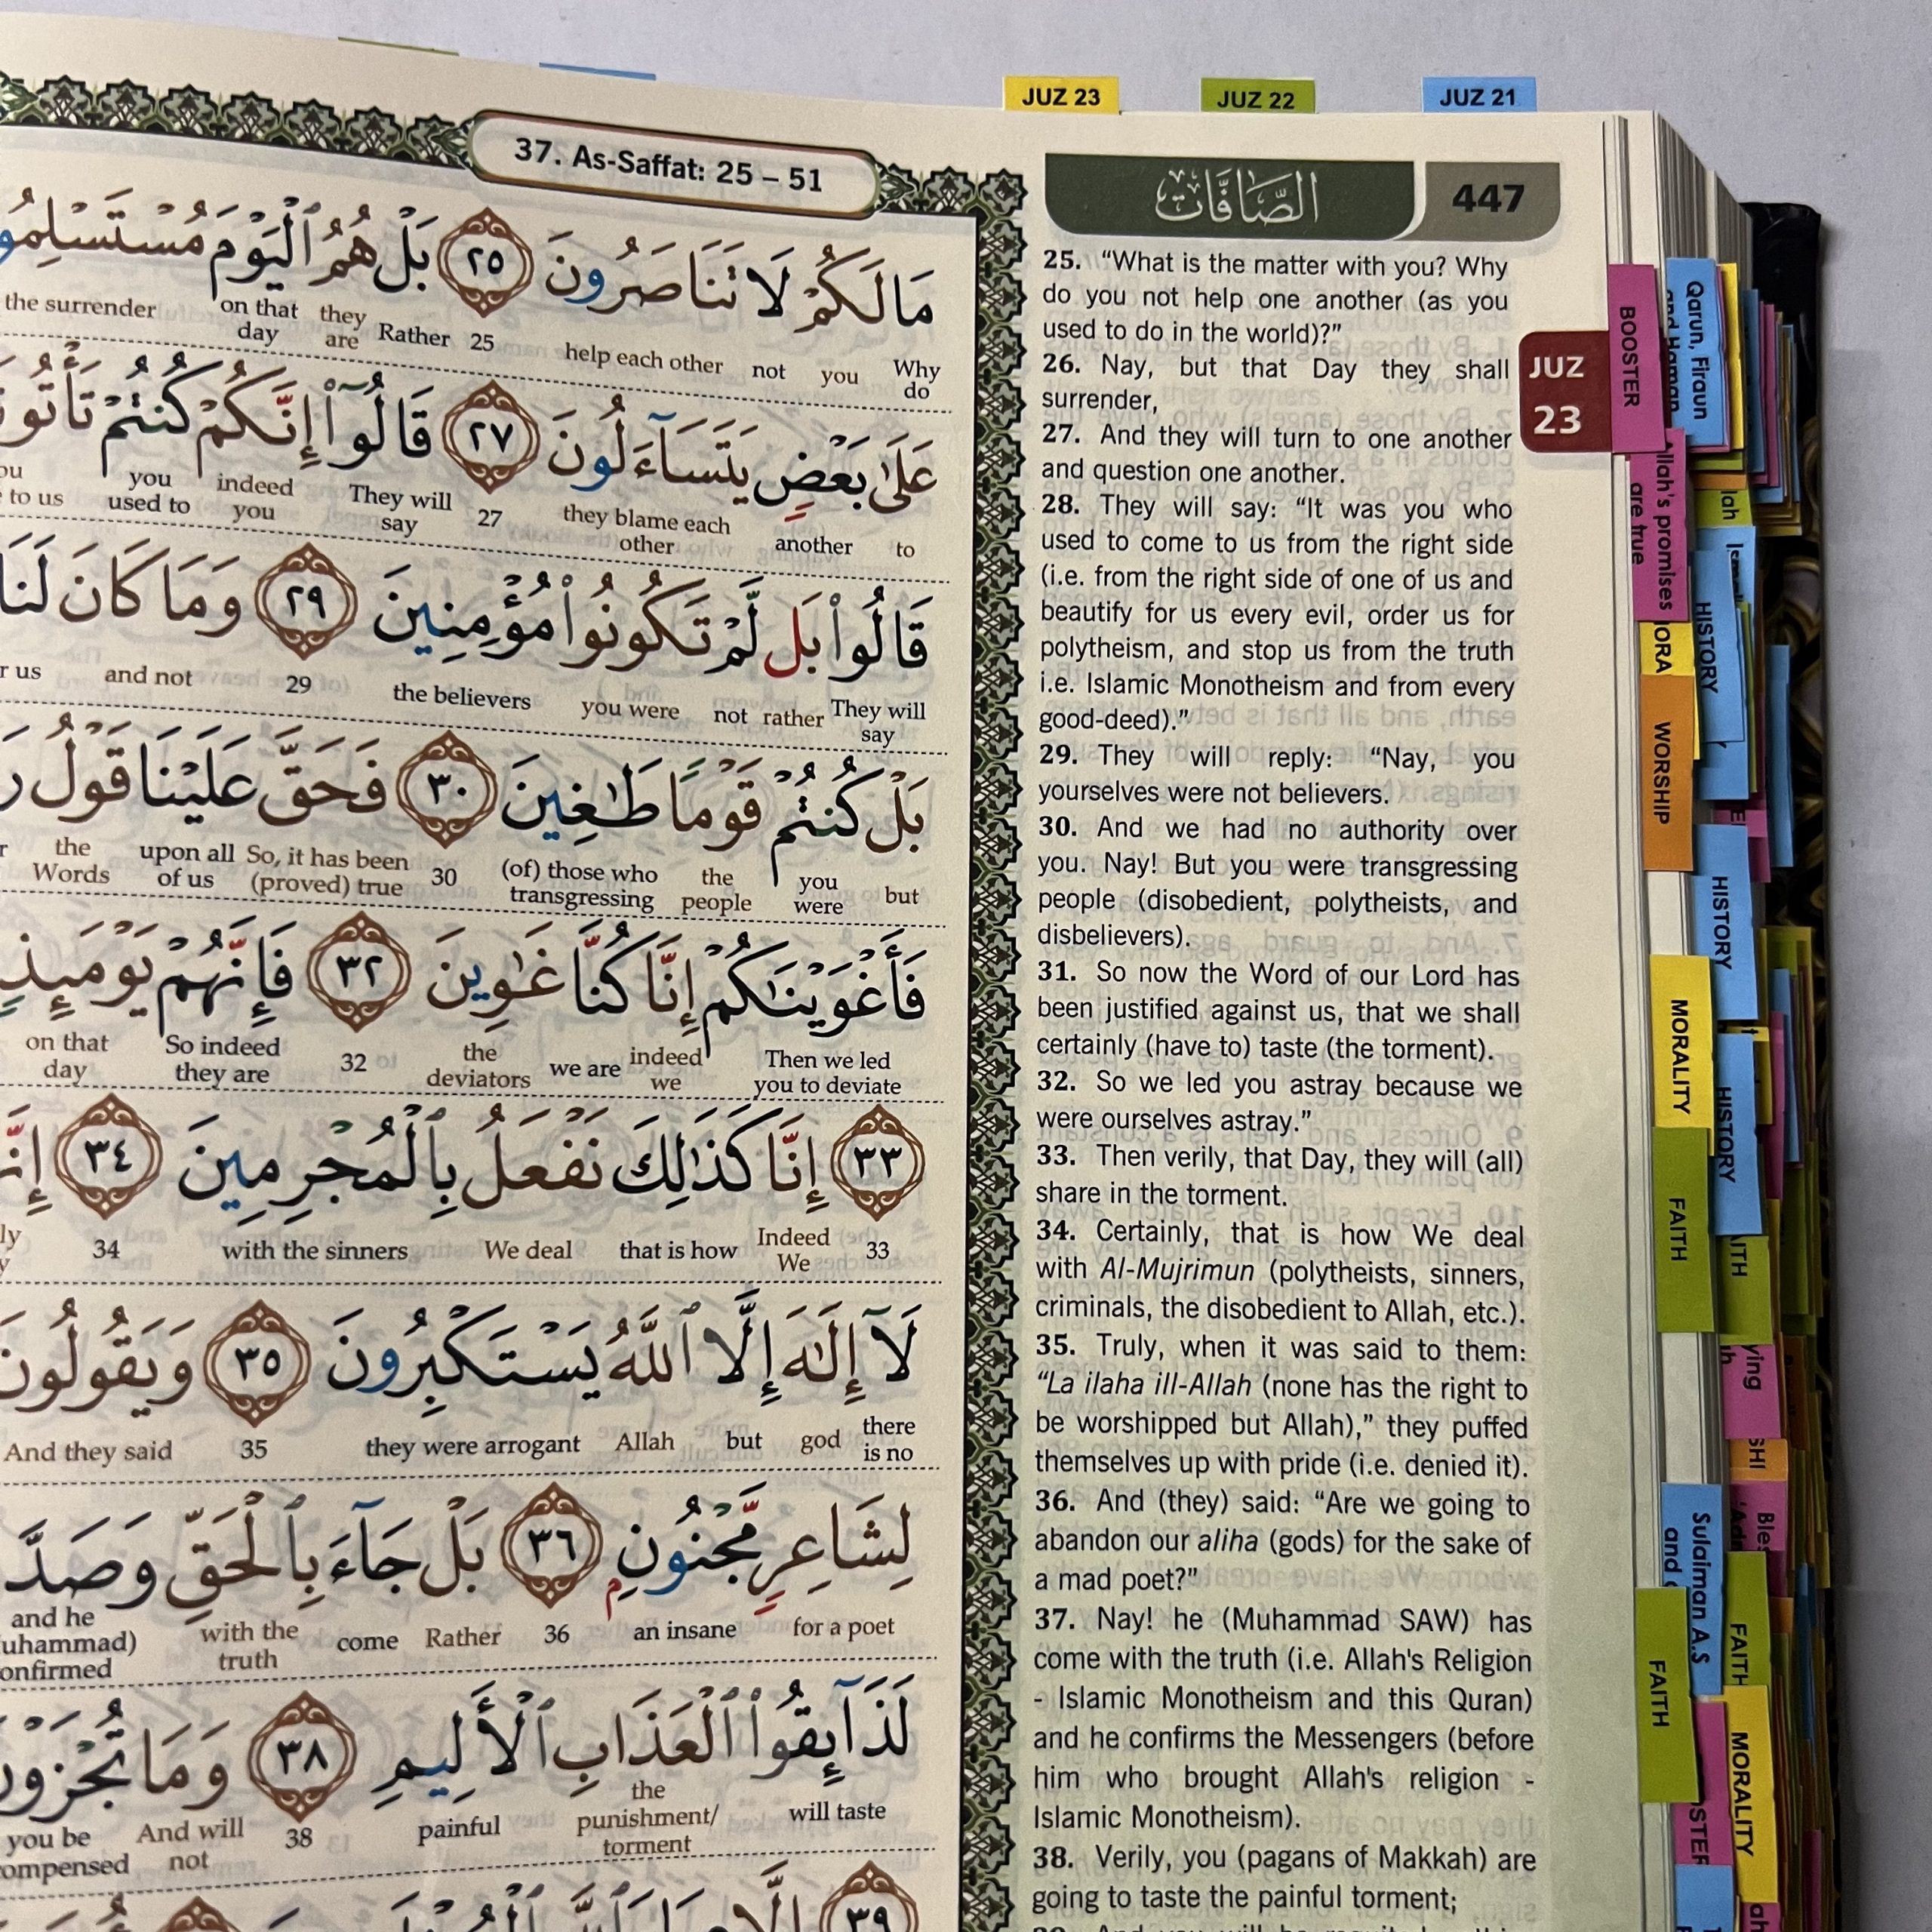 JUZ 23
JUZ 22
JUZ 21
37. As-Saffat: 25 – 51
الصَّافَّات
447
مَا لَكُمْ لَا تَنَاصَرُونَ ٢٥ بَلْ هُمُ ٱلْيَوْمَ
Why do you not help each other 25 Rather they are on that day the surrender
عَلَىٰ بَعْضٍ يَتَسَآءَلُونَ ٢٧ قَالُوٓا۟ إِنَّكُمْ كُنتُمْ
to another they blame each other 27 They will say indeed you you used to to us
قَالُوا۟ بَل لَّمْ تَكُونُوا۟ مُؤْمِنِينَ ٢٩ وَمَا كَانَ لَنَا
They will say rather not you were the believers 29 and not us
بَلْ كُنتُمْ قَوْمًا طَٰغِينَ ٣٠ فَحَقَّ عَلَيْنَا قَوْلُ
but you were the people (of) those who transgressing 30 So, it has been (proved) true upon all of us the Words
فَأَغْوَيْنَٰكُمْ إِنَّا كُنَّا غَٰوِينَ ٣٢ فَإِنَّهُمْ يَوْمَئِذٍ
Then we led you to deviate indeed we we are the deviators 32 So indeed they are on that day
٣٣ إِنَّا كَذَٰلِكَ نَفْعَلُ بِٱلْمُجْرِمِينَ ٣٤
33 Indeed We that is how We deal with the sinners 34
لَآ إِلَٰهَ إِلَّا ٱللَّهُ يَسْتَكْبِرُونَ ٣٥ وَيَقُولُونَ
there is no god but Allah they were arrogant 35 And they said
لِشَاعِرٍ مَّجْنُونٍۭ ٣٦ بَلْ جَآءَ بِٱلْحَقِّ
for a poet an insane 36 Rather come with the truth and he
لَذَآئِقُوا۟ ٱلْعَذَابِ ٱلْأَلِيمِ ٣٨ وَمَا
will taste the punishment/ torment painful 38 And will not you be
٣٩
25. “What is the matter with you? Why
do you not help one another (as you
used to do in the world)?”
26. Nay, but that Day they shall
surrender,
27. And they will turn to one another
and question one another.
28. They will say: “It was you who
used to come to us from the right side
(i.e. from the right side of one of us and
beautify for us every evil, order us for
polytheism, and stop us from the truth
i.e. Islamic Monotheism and from every
good-deed).”
29. They will reply: “Nay, you
yourselves were not believers.
30. And we had no authority over
you. Nay! But you were transgressing
people (disobedient, polytheists, and
disbelievers).
31. So now the Word of our Lord has
been justified against us, that we shall
certainly (have to) taste (the torment).
32. So we led you astray because we
were ourselves astray.”
33. Then verily, that Day, they will (all)
share in the torment.
34. Certainly, that is how We deal
with Al-Mujrimun (polytheists, sinners,
criminals, the disobedient to Allah, etc.).
35. Truly, when it was said to them:
“La ilaha ill-Allah (none has the right to
be worshipped but Allah),” they puffed
themselves up with pride (i.e. denied it).
36. And (they) said: “Are we going to
abandon our aliha (gods) for the sake of
a mad poet?”
37. Nay! he (Muhammad SAW) has
come with the truth (i.e. Allah's Religion
- Islamic Monotheism and this Quran)
and he confirms the Messengers (before
him who brought Allah's religion -
Islamic Monotheism).
38. Verily, you (pagans of Makkah) are
going to taste the painful torment;
JUZ
23
BOOSTER
Qarun, Firaun
and Haman
promises
are true
HISTORY
WORSHIP
HISTORY
MORALITY
HISTORY
FAITH
Sulaiman A.S
and
FAITH
FAITH
MORALITY